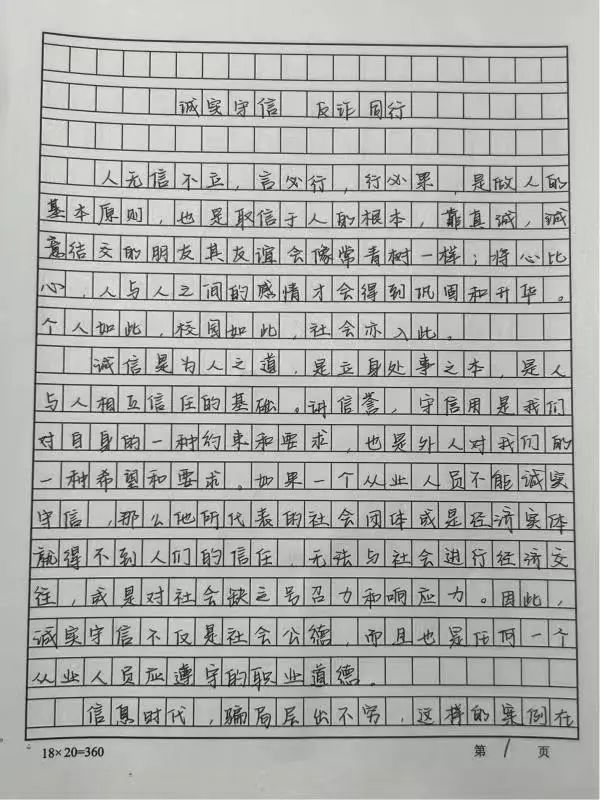 诚实守信 反诈同行
人无信不立,言必行,行必果,是做人的
基本原则,也是取信于人的根本,靠真诚,诚
意结交的朋友其友谊会像常青树一样;将心比
心,人与人之间的感情才会得到巩固和升华。
个人如此,校园如此,社会亦入此。
诚信是为人之道,是立身处事之本,是人
与人相互信任的基础。讲信誉,守信用是我们
对自身的一种约束和要求,也是外人对我们的
一种希望和要求。如果一个从业人员不能诚实
守信,那么他所代表的社会团体或是经济实体
就得不到人们的信任,无法与社会进行经济交
往,或是对社会缺乏号召力和响应力。因此,
诚实守信不仅是社会公德,而且也是任何一个
从业人员应遵守的职业道德。
信息时代,骗局层出不穷,这样的案例在
18×20=360 第 1 页